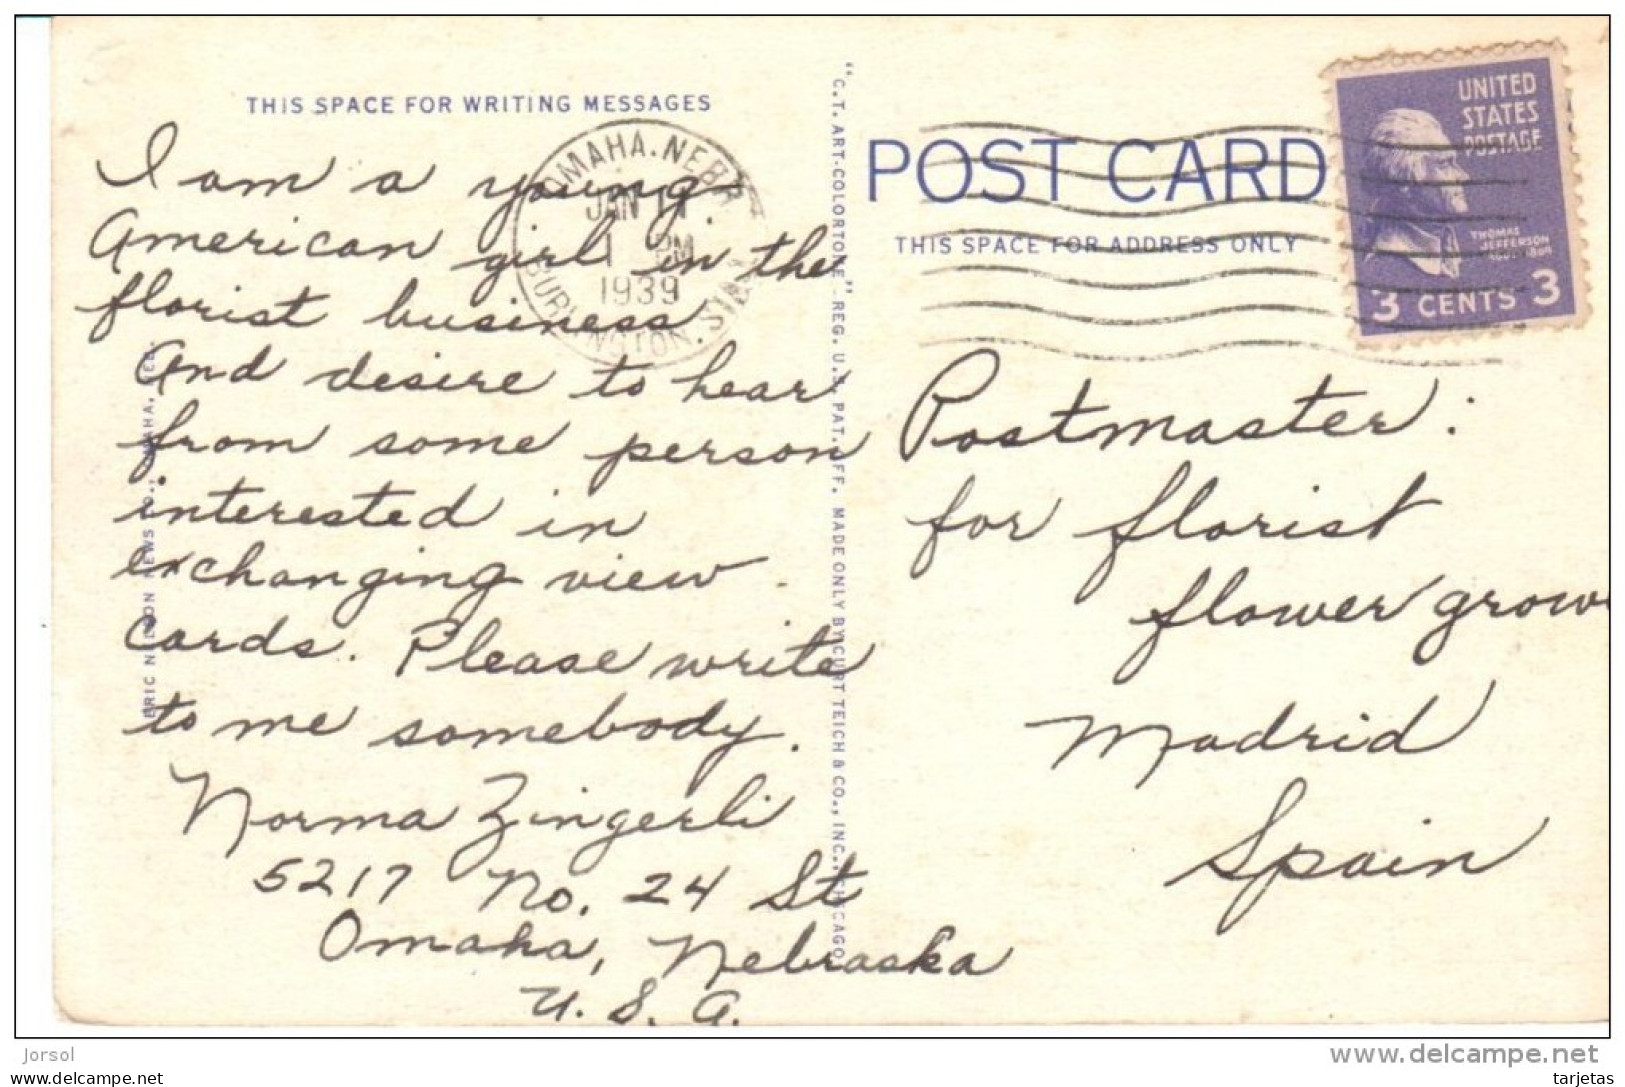 THIS SPACE FOR WRITING MESSAGES
I am a young
American girl in the
florist business
And desire to hear
from some person
interested in
exchanging view
cards. Please write
to me somebody.
Norma Zingerli
5217 No. 24 St
Omaha, Nebraska
U. S. A.
OMAHA. NEBR
JAN
1 PM
1939
BURLINGTON. STA.
"C. T. ART-COLORTONE" REG. U. S. PAT. OFF. MADE ONLY BY CURT TEICH & CO., INC., CHICAGO
POST CARD
THIS SPACE FOR ADDRESS ONLY
UNITED
STATES
POSTAGE
THOMAS
JEFFERSON
3 CENTS 3
Postmaster:
for florist
flower grow
Madrid
Spain
ERIC NELSON NEWS CO., OMAHA, NEB.
Jorsol
www.delcampe.net
tarjetas